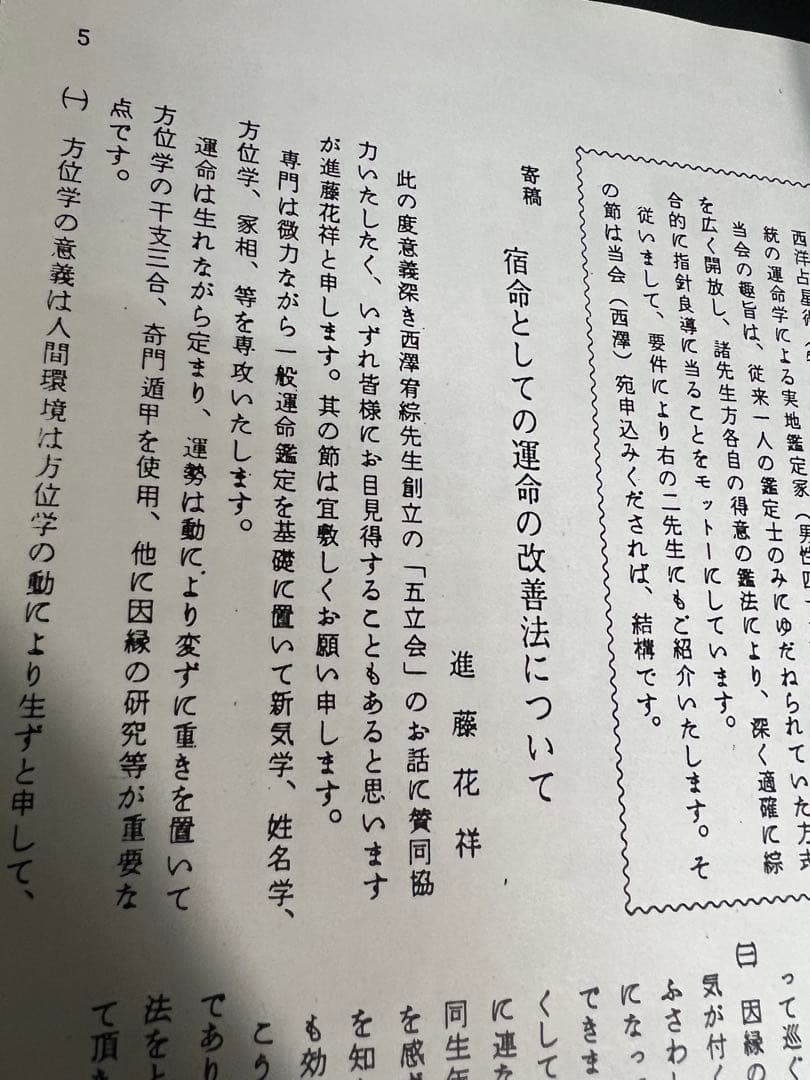 西洋占星術
統の運命学による実地鑑定家(男性四
当会の趣旨は、従来一人の鑑定士のみにゆだねられていた方式
を広く開放し、諸先生方各自の得意の鑑法により、深く適確に綜
合的に指針良導に当ることをモットーにしています。
従いまして、要件により右の二先生にもご紹介いたします。そ
の節は当会(西澤)宛申込みくだされば、結構です。
寄稿 宿命としての運命の改善法について
進藤花祥
此の度意義深き西澤宥綜先生創立の「五立会」のお話に賛同協
力いたしたく、いずれ皆様にお目見得することもあると思います
が進藤花祥と申します。其の節は宜敷しくお願い申します。
専門は微力ながら一般運命鑑定を基礎に置いて新気学、姓名学、
方位学、家相、等を専攻いたします。
運命は生れながら定まり、運勢は動により変ずに重きを置いて
方位学の干支三合、奇門遁甲を使用、他に因縁の研究等が重要な
点です。
㈠ 方位学の意義は人間環境は方位学の動により生ずと申して、
って巡ぐ
㈢ 因縁の
気が付く
ふさわし
になっ
できま
くして
に連な
同生年
を感
を知
も効
こう
であり
法をと
て頂き
5